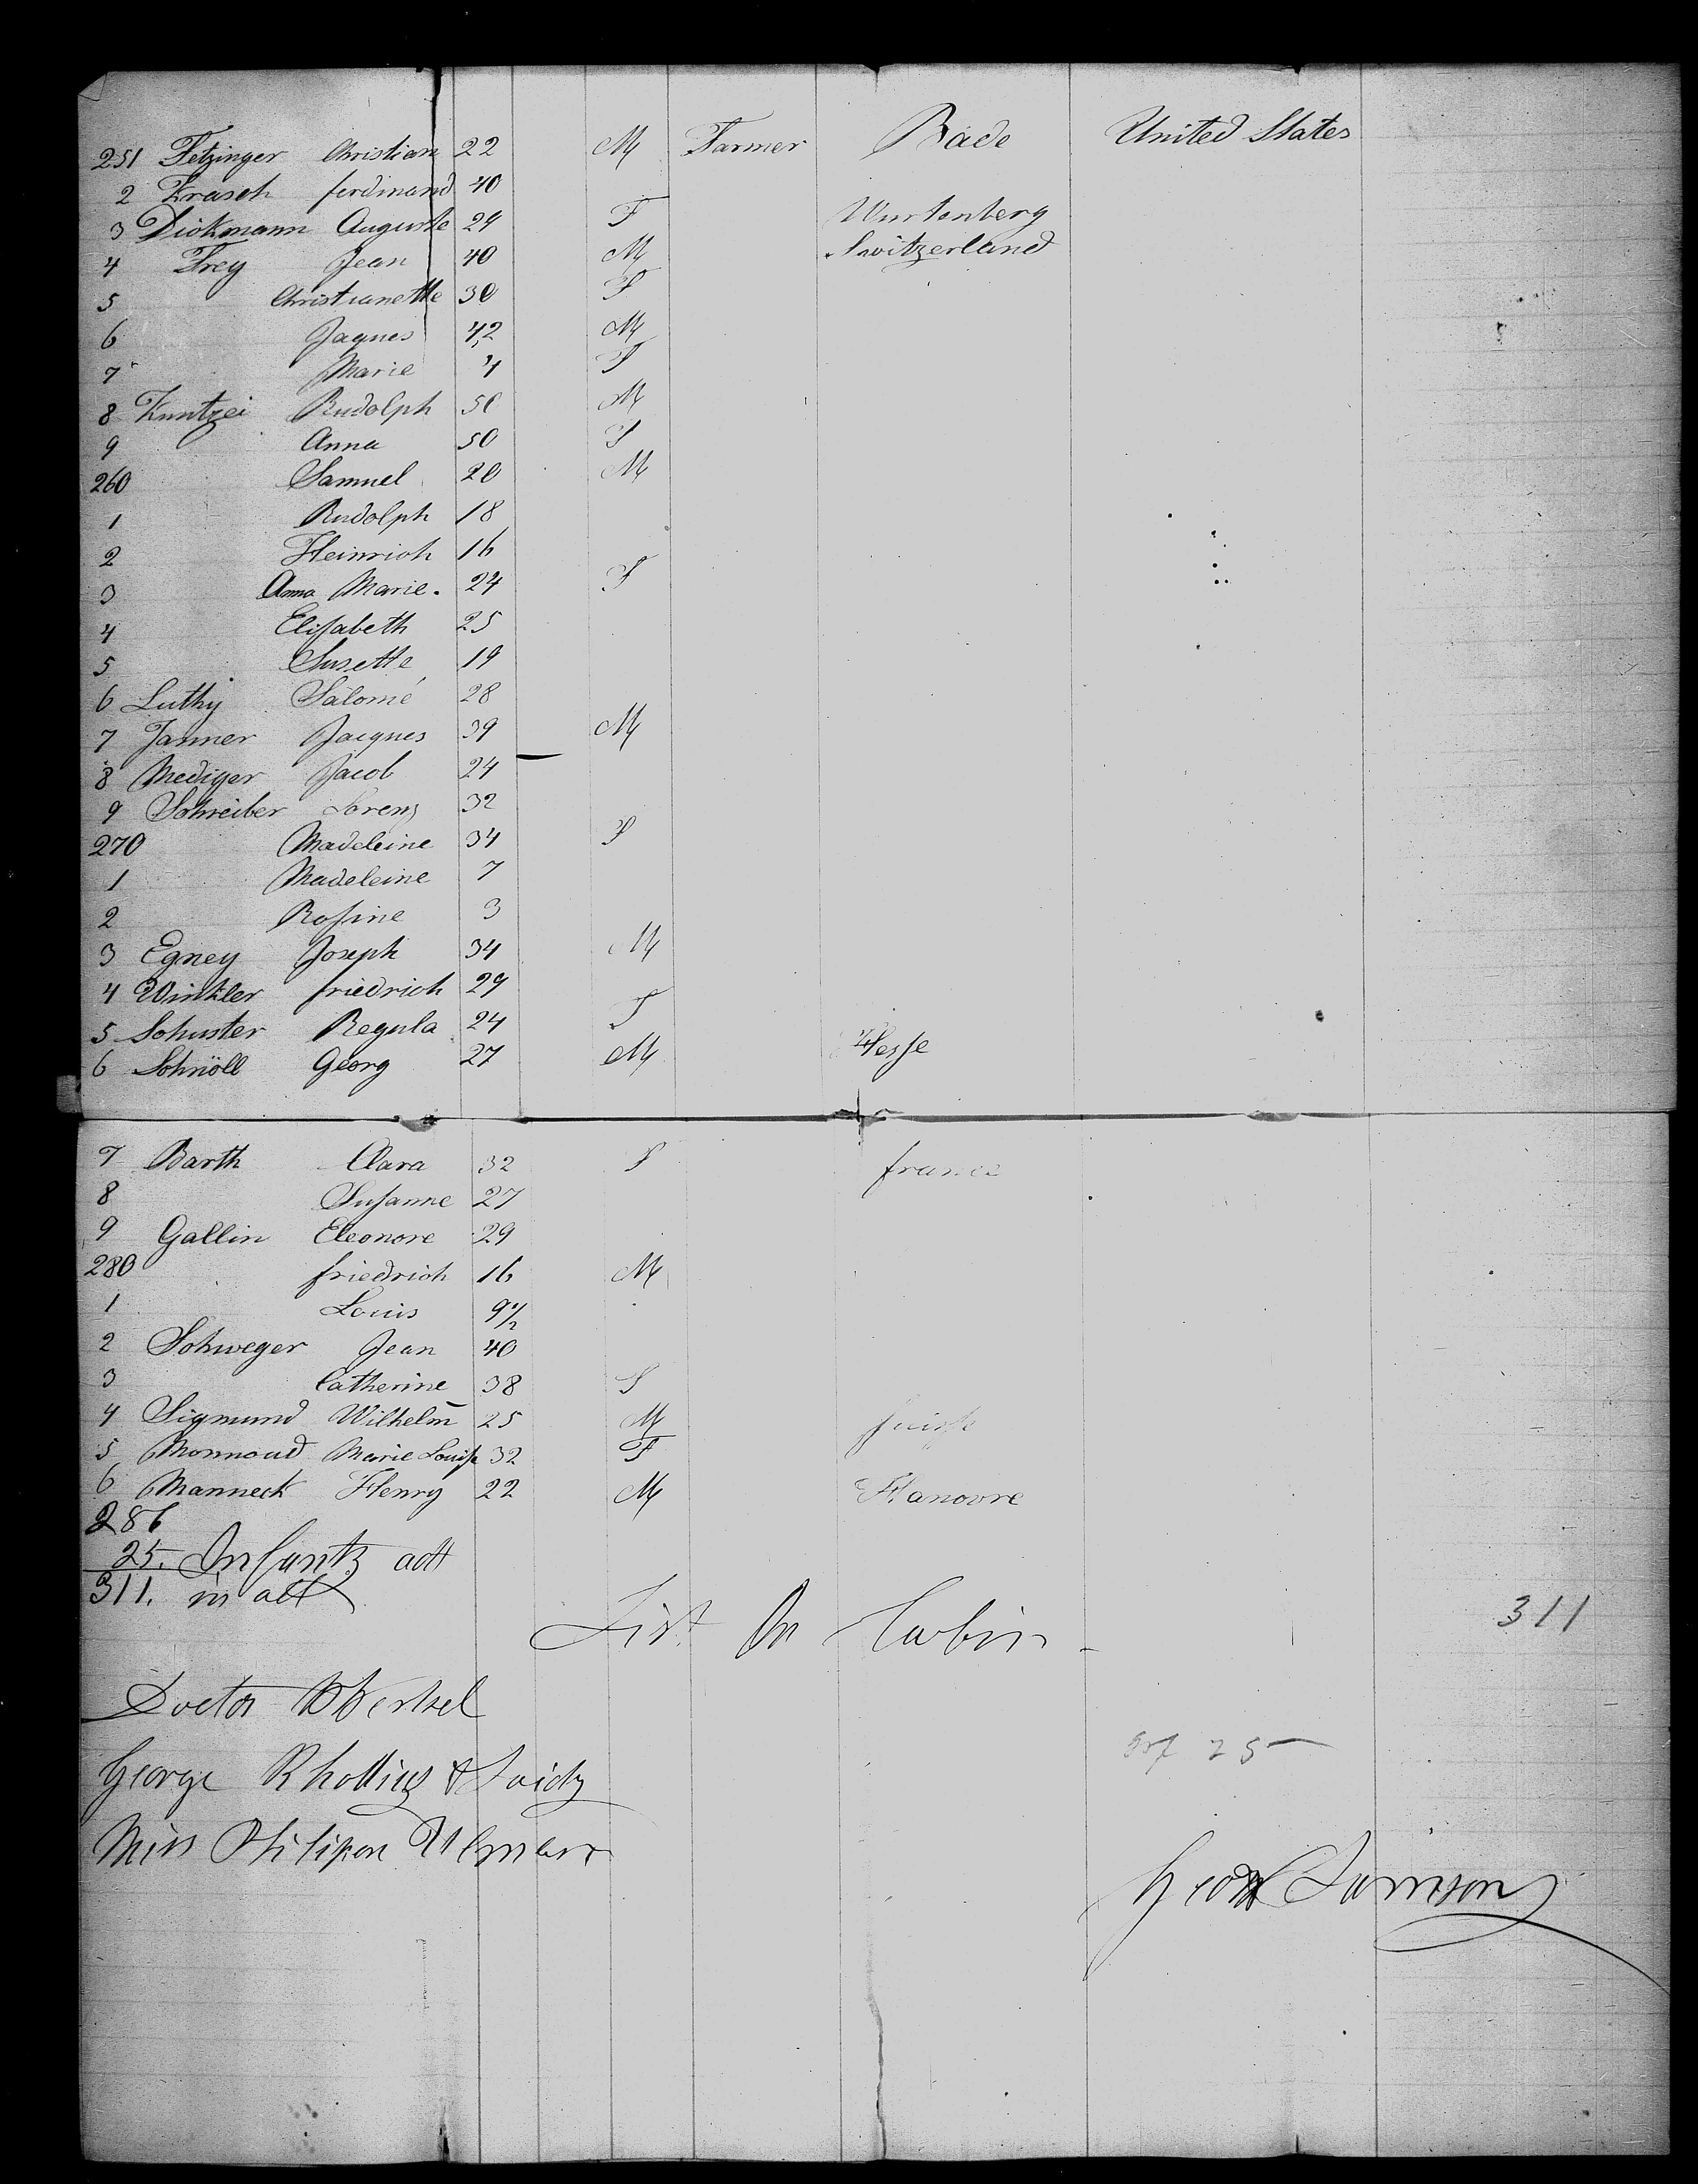 251 Fetzinger Christian 22 M Farmer Bade United States
2 Krasch ferdinand 40
3 Dickmann Auguste 24 F Wurtenberg
4 Frey Jean 40 M Switzerland
5 Christianette 30 F
6 Jaques 4,2 M
7 Marie 4 F
8 Kuntzei Rudolph 50 M
9 Anna 50 F
260 Samuel 20 M
1 Rudolph 18
2 Heinrich 16
3 Anna Marie. 24 F
4 Elisabeth 25
5 Susette 19
6 Luthy Salomé 28
7 Janner Jacques 39 M
8 Mediger Jacob 24
9 Schreiber Lorenz 32
270 Madeleine 34 F
1 Madeleine 7
2 Rosine 3
3 Egney Joseph 34 M
4 Winkler friedrich 29
5 Schuster Regula 24 F
6 Schnöll Georg 27 M Hesse
7 Barth Clara 32 F france
8 Susanne 27
9 Gallin Eleonore 29
280 friedrich 16 M
1 Louis 9 1/2
2 Schweger Jean 40
3 Catherine 38 F
4 Sigmund Wilhelm 25 M Suisse
5 Monnoud Marie Louise 32 F
6 Manneck Henry 22 M Hanovre
286
25. Infants
311. in all
List In Cabin 311
Doctor
George
25
Miss